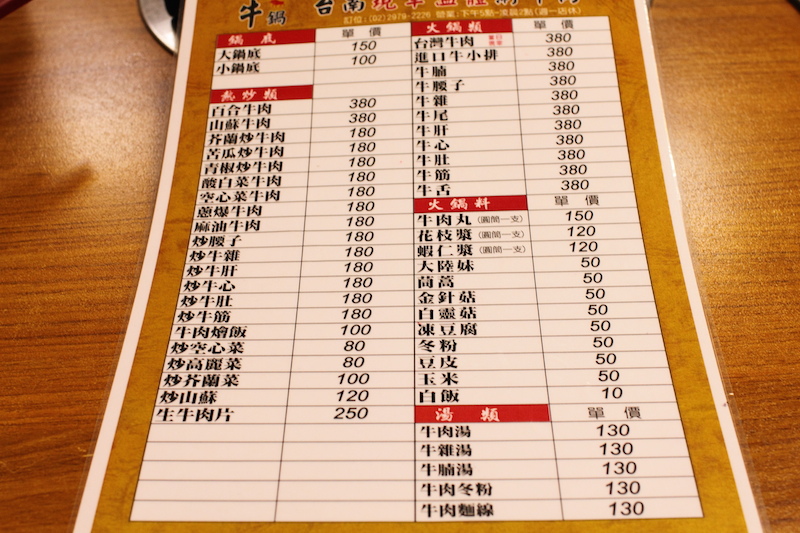 牛鍋 台南現宰溫體
訂位:(02)2979-2226 營業:下午5點-凌晨2點(週一店休)
鍋底 單價
大鍋底 150
小鍋底 100
熱炒類
百合牛肉 380
山蘇牛肉 380
芥蘭炒牛肉 180
苦瓜炒牛肉 180
青椒炒牛肉 180
酸白菜牛肉 180
空心菜牛肉 180
蔥爆牛肉 180
麻油牛肉 180
炒腰子 180
炒牛雜 180
炒牛肝 180
炒牛心 180
炒牛肚 180
炒牛筋 180
牛肉燴飯 100
炒空心菜 80
炒高麗菜 80
炒芥蘭菜 100
炒山蘇 120
生牛肉片 250
火鍋類 單價
台灣牛肉 380
進口牛小排 380
牛腩 380
牛腰子 380
牛雜 380
牛尾 380
牛肝 380
牛心 380
牛肚 380
牛筋 380
牛舌 380
火鍋料 單價
牛肉丸(圓間一支) 150
花枝漿(圓間一支) 120
蝦仁漿(圓間一支) 120
大陸妹 50
茼蒿 50
金針菇 50
白靈菇 50
凍豆腐 50
冬粉 50
豆皮 50
玉米 50
白飯 10
湯類 單價
牛肉湯 130
牛雜湯 130
牛腩湯 130
牛肉冬粉 130
牛肉麵線 130